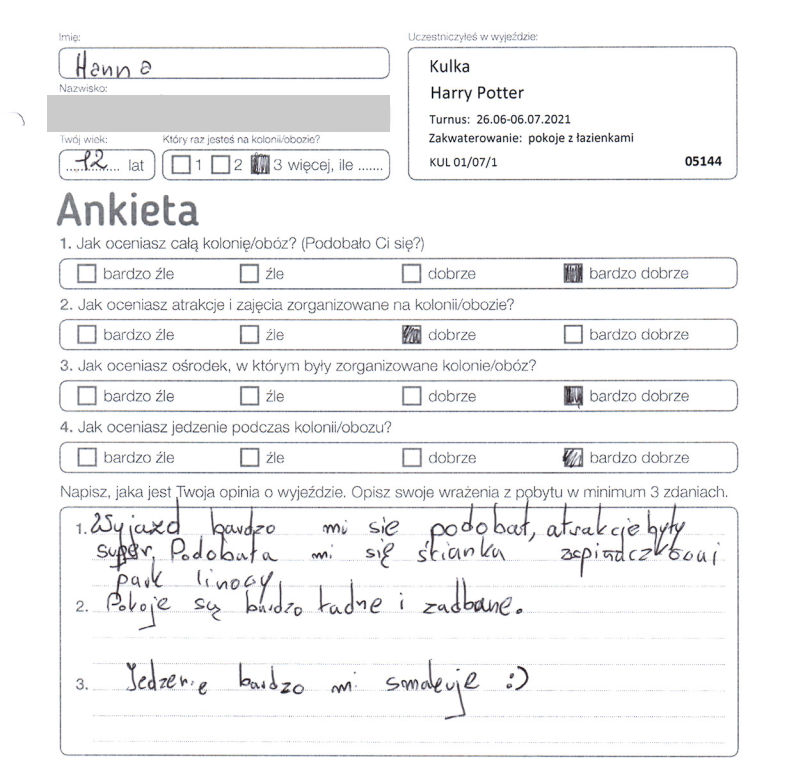 Imię:
Hanna
Nazwisko:
Twój wiek: Który raz jesteś na kolonii/obozie?
12 lat 1 2 3 więcej, ile .......
Uczestniczyłeś w wyjeździe:
Kulka
Harry Potter
Turnus: 26.06-06.07.2021
Zakwaterowanie: pokoje z łazienkami
KUL 01/07/1 05144
Ankieta
1. Jak oceniasz całą kolonię/obóz? (Podobało Ci się?)
bardzo źle źle dobrze bardzo dobrze
2. Jak oceniasz atrakcje i zajęcia zorganizowane na kolonii/obozie?
bardzo źle źle dobrze bardzo dobrze
3. Jak oceniasz ośrodek, w którym były zorganizowane kolonie/obóz?
bardzo źle źle dobrze bardzo dobrze
4. Jak oceniasz jedzenie podczas kolonii/obozu?
bardzo źle źle dobrze bardzo dobrze
Napisz, jaka jest Twoja opinia o wyjeździe. Opisz swoje wrażenia z pobytu w minimum 3 zdaniach.
1. Wyjazd bardzo mi się podobał, atrakcje były
super, Podobała mi się ścianka wspinaczkowa i
park linowy
2. Pokoje są bardzo ładne i zadbane.
3. Jedzenie bardzo mi smakuje :)